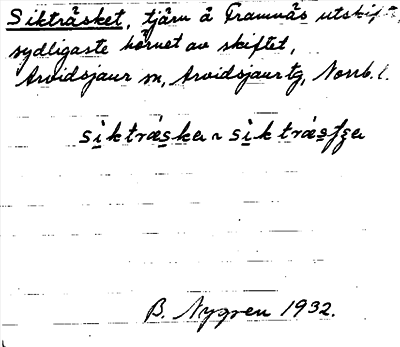 Sikträsket, tjärn å Framnäs utskift,
sydligaste hörnet av skiftet,
Arvidsjaur sn, Arvidsjaur tg, Norrb. l.
siktràskα ~ siktràsƭʒα
B. Nygren 1932.